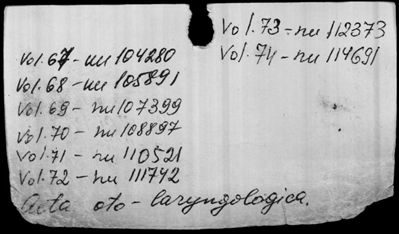 Vol. 67 - nu 104280
Vol. 68 - nu 105891
Vol. 69 - nu 107399
Vol. 70 - nu 108897
Vol. 71 - nu 110521
Vol. 72 - nu 111742
Acta oto - laryngologica.
Vol. 73 - nu 112373
Vol. 74 - nu 114691